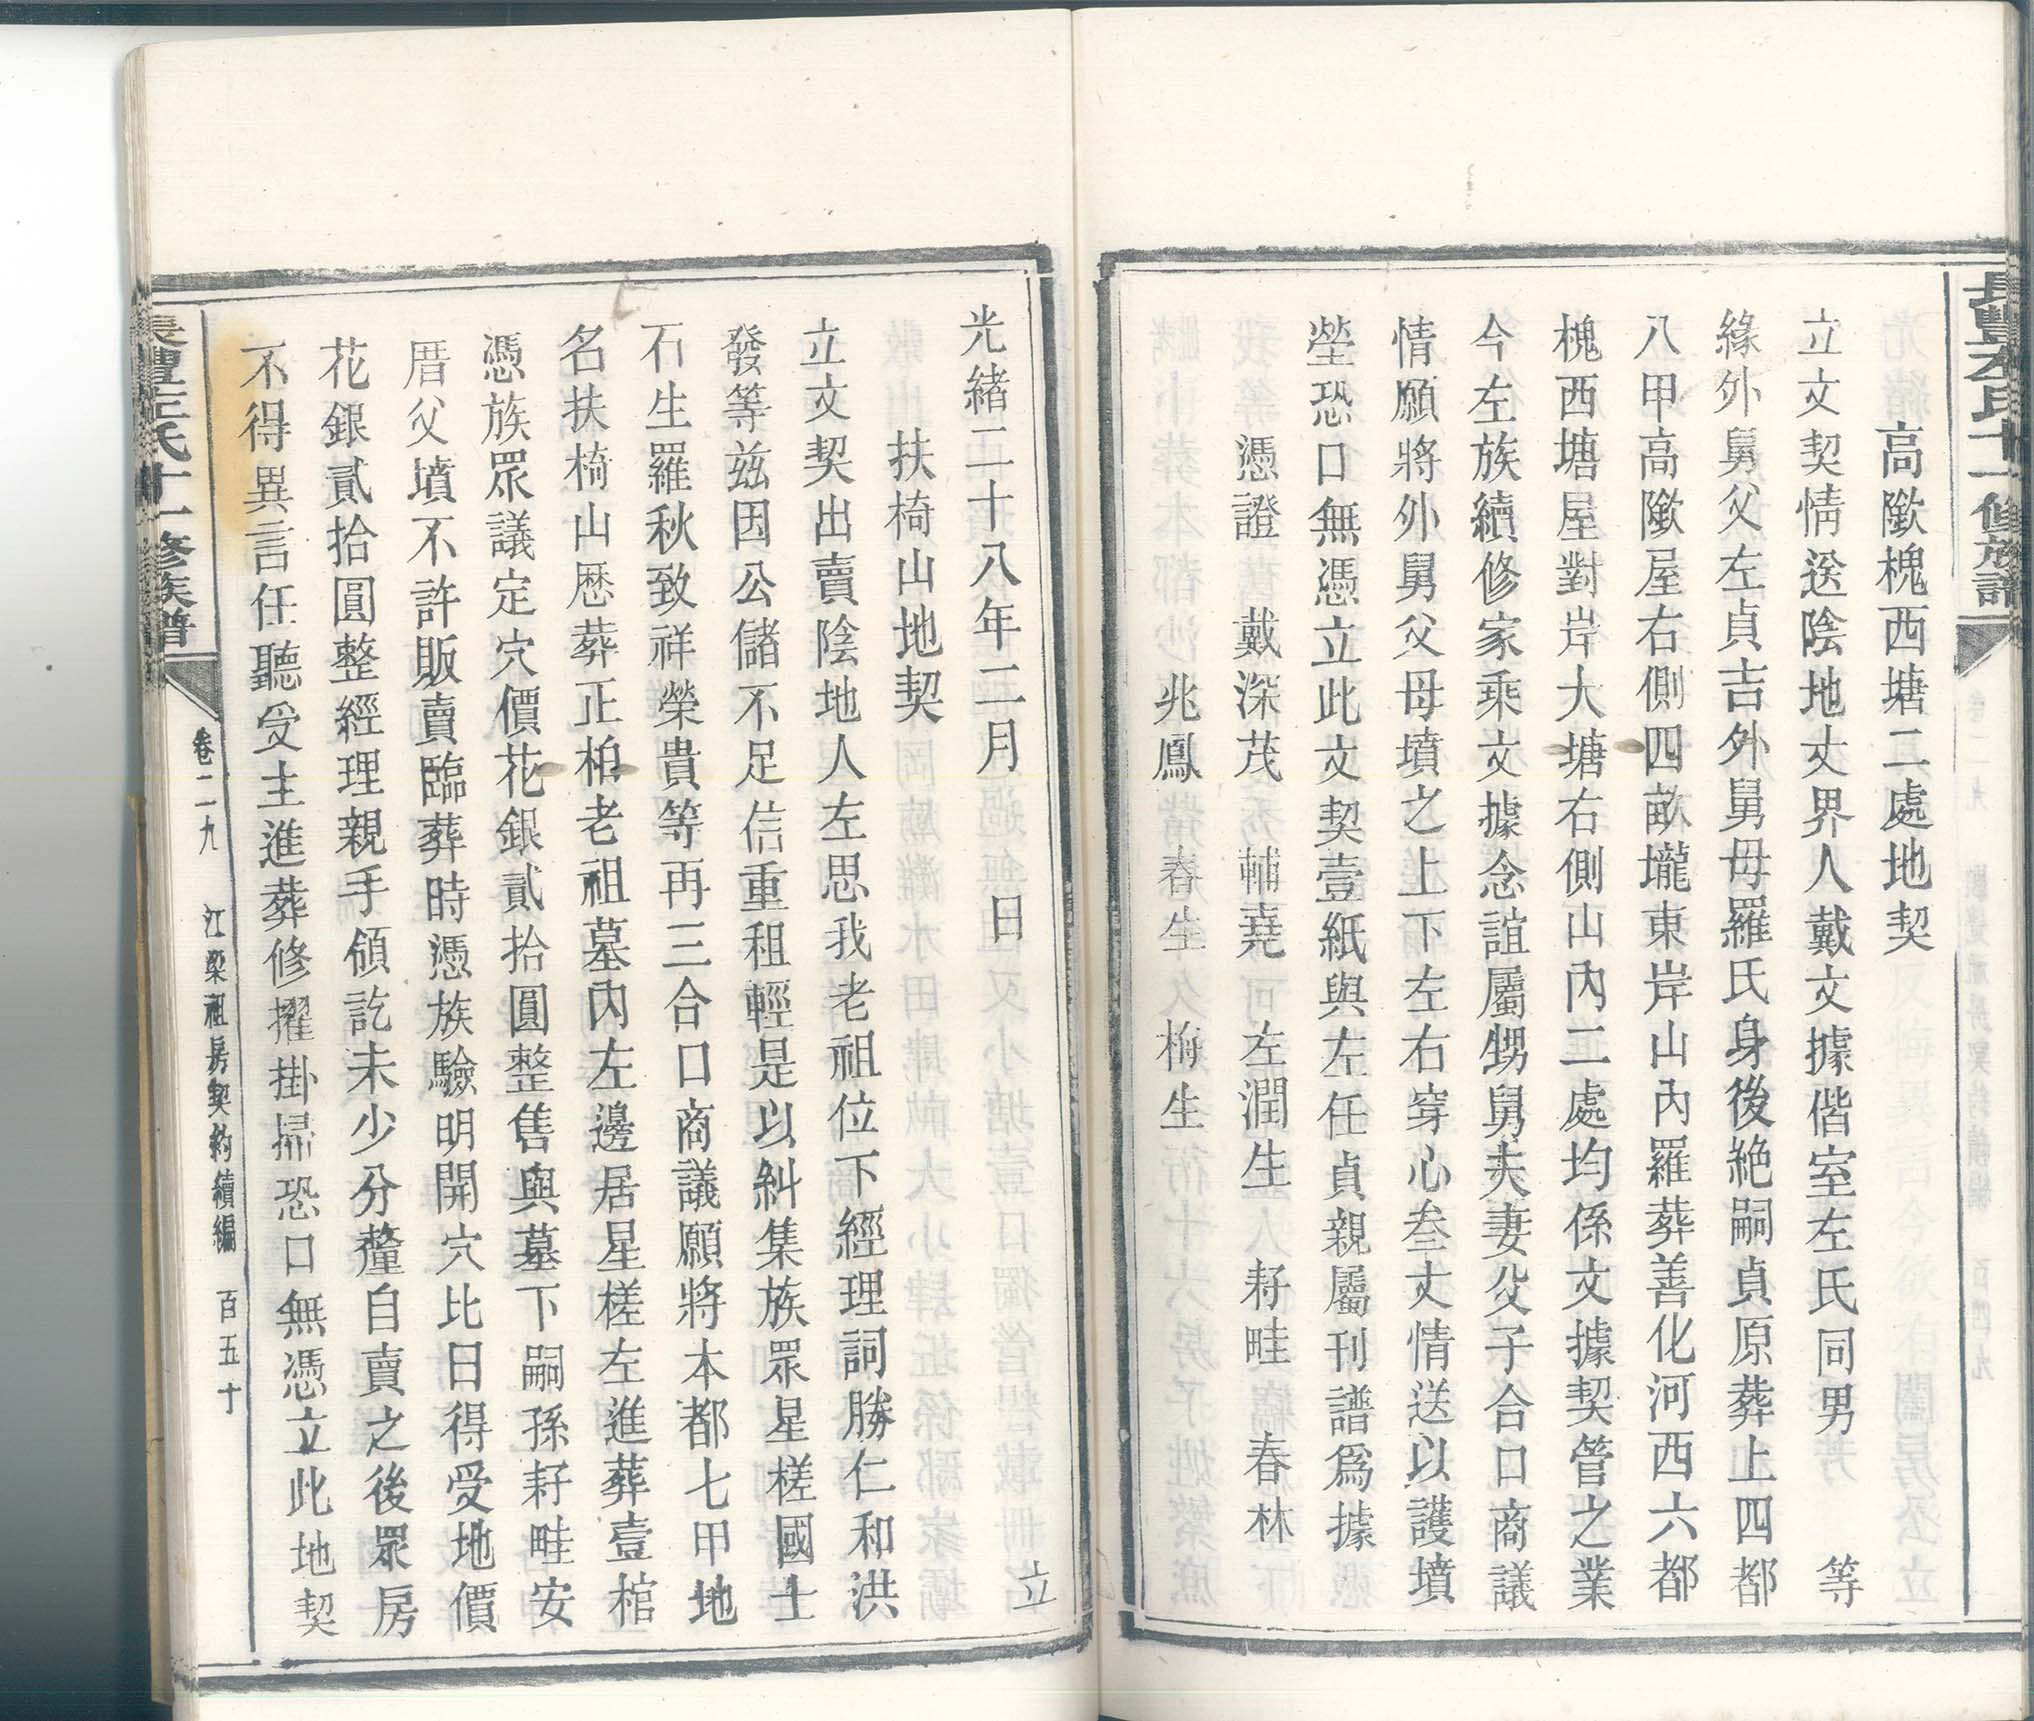 高隞槐西塘二處地契
立文契情送陰地丈界人戴文據偕室左氏同男 等
緣外舅父左貞吉外舅母羅氏身後絕嗣貞原葬上四都
八甲高隞屋右側四畝壠東岸山內羅葬善化河西六都
槐西塘屋對岸大塘右側山內二處均係文據契管之業
今左族續修家乘文據念誼屬甥舅夫妻父子合口商議
情願將外舅父母墳之上下左右穿心叁丈情送以護墳
塋恐口無憑立此文契壹紙與左任貞親屬刊譜爲據
憑證 戴深茂 輔堯 左潤生 耔畦 春林
兆鳳 春生 梅生
光緒二十八年二月 日 立
扶椅山地契
立文契出賣陰地人左思我老祖位下經理詞勝仁和洪
發等兹因公儲不足信重租輕是以糾集族眾星槎國士
石生羅秋致祥榮貴等再三合口商議願將本都七甲地
名扶椅山歷葬正柏老祖墓內左邊居星槎左進葬壹棺
憑族眾議定穴價花銀貳拾圓整售與墓下嗣孫耔畦安
厝父墳不許販賣臨葬時憑族驗明開穴比日得受地價
花銀貳拾圓整經理親手領訖未少分釐自賣之後眾房
不得異言任聽受主進葬修擢掛掃恐口無憑立此地契
長豐左氏十一修族譜
卷二九 江梁祖房契約續編 百五十